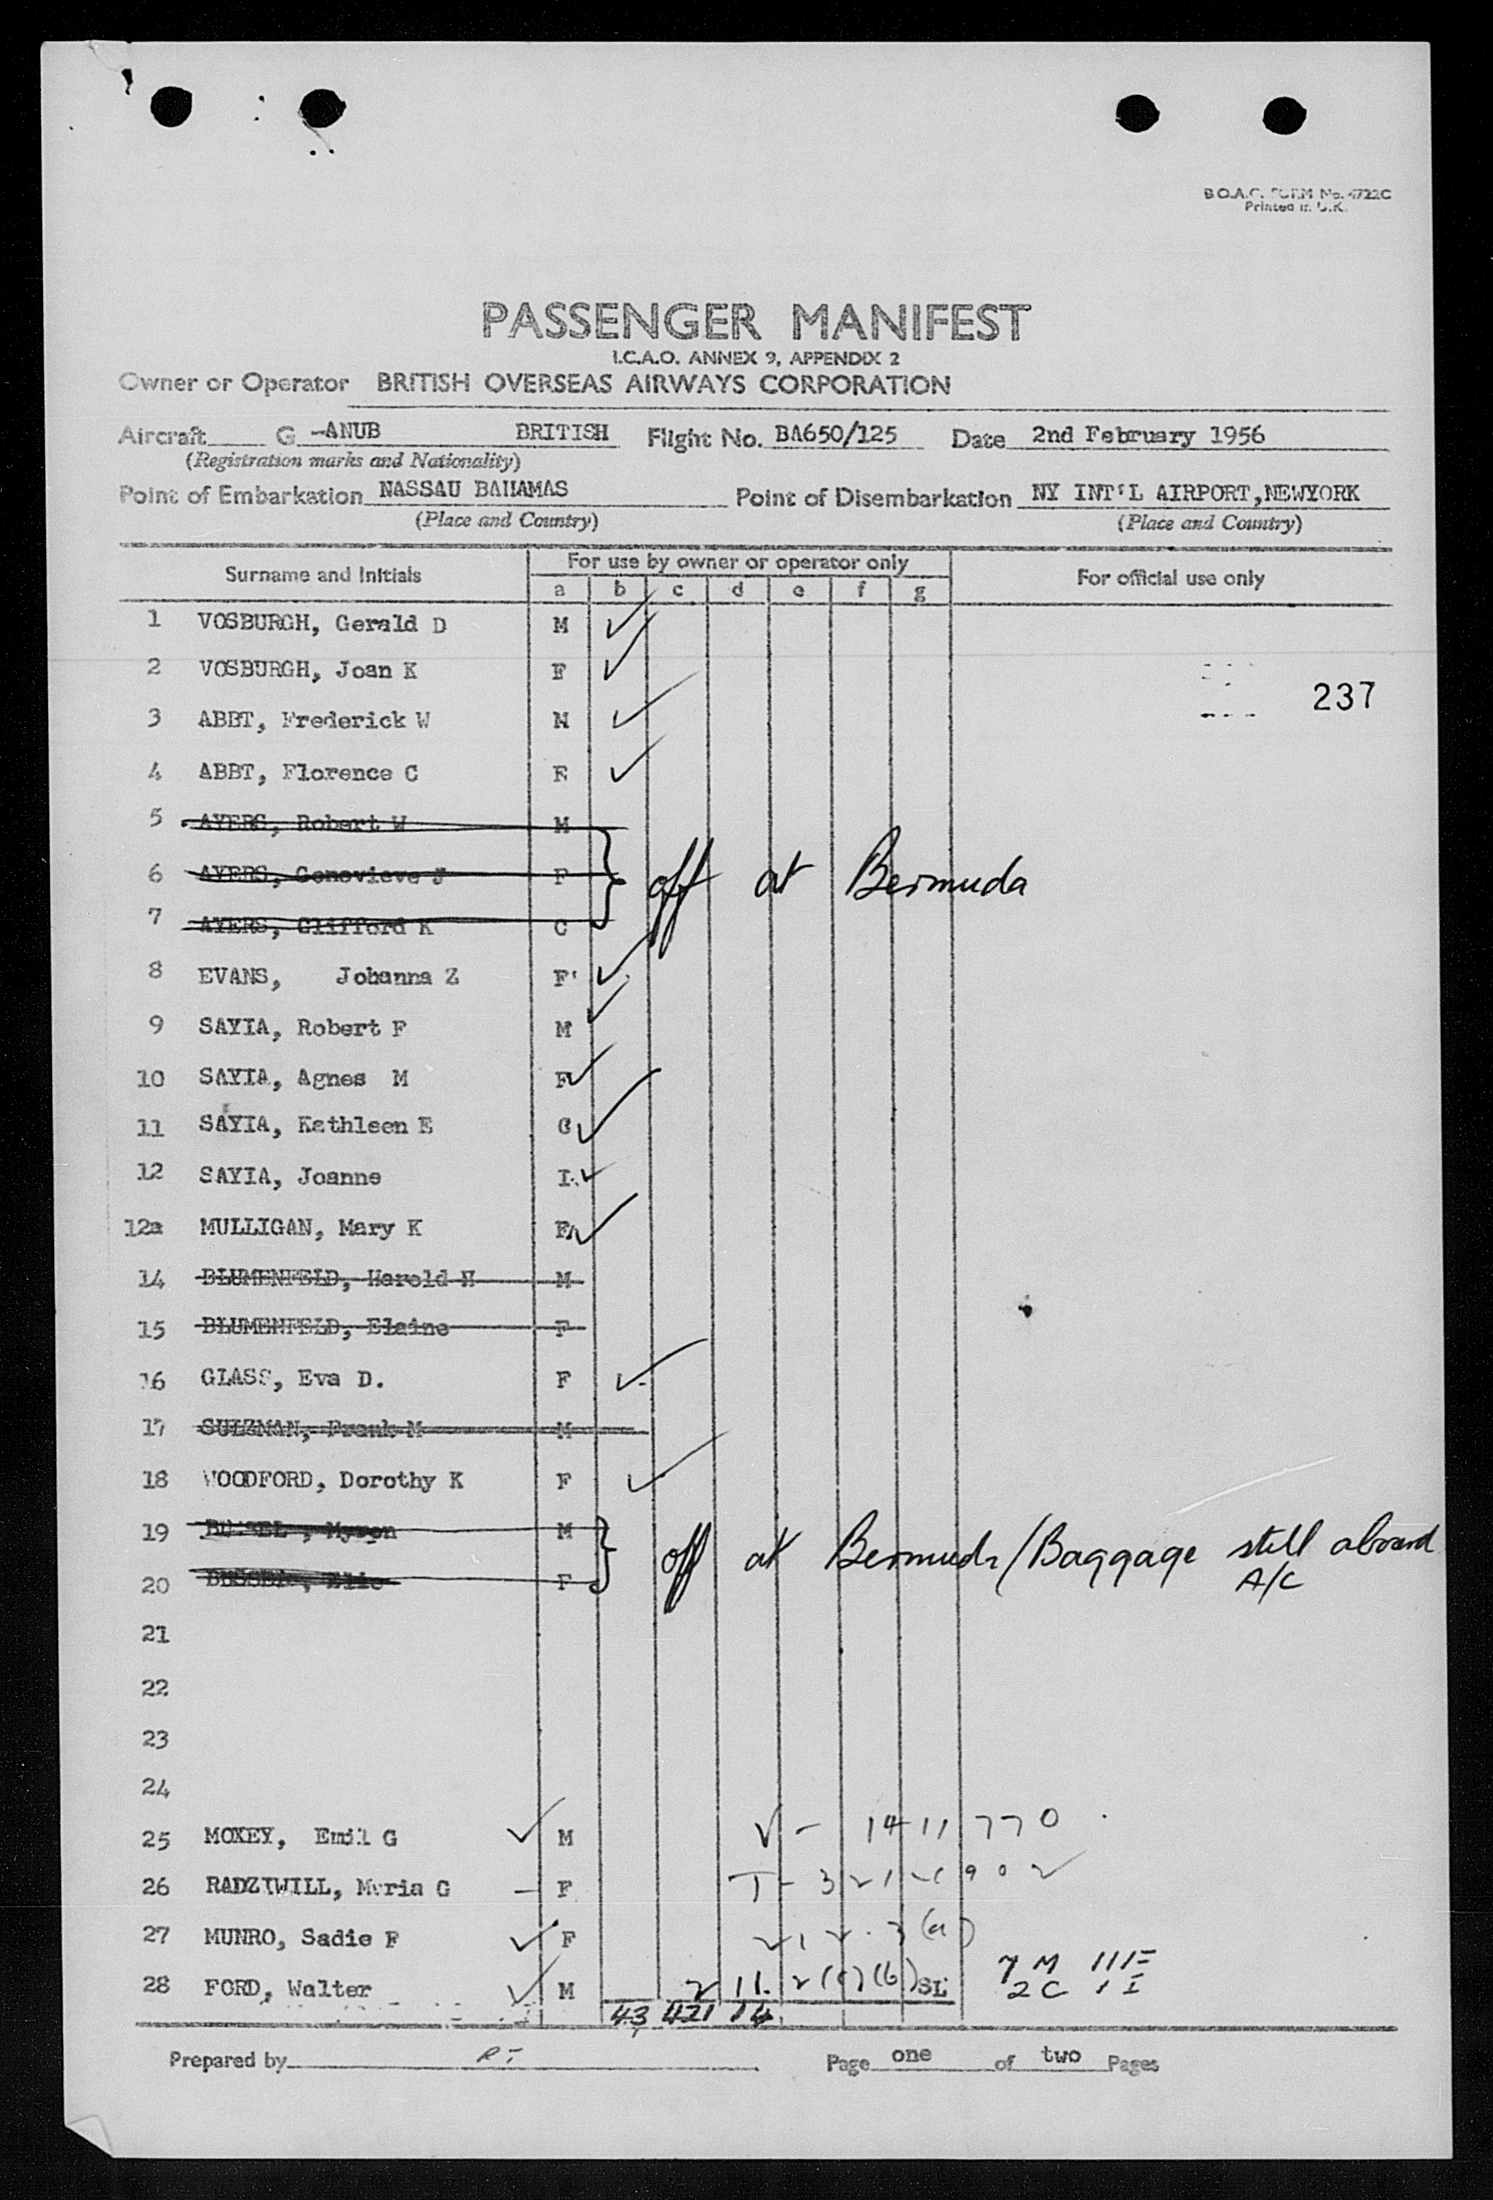 B.O.A.C. FORM No. 4722C
Printed in U.K.
PASSENGER MANIFEST
I.C.A.O. ANNEX 9, APPENDIX 2
Owner or Operator BRITISH OVERSEAS AIRWAYS CORPORATION
Aircraft G -ANUB BRITISH Flight No. BA650/125 Date 2nd February 1956
(Registration marks and Nationality)
Point of Embarkation NASSAU BAHAMAS Point of Disembarkation NY INT'L AIRPORT,NEWYORK
(Place and Country) (Place and Country)
Surname and Initials For use by owner or operator only For official use only
a b c d e f g
1 VOSBURGH, Gerald D M
2 VOSBURGH, Joan K F
237
3 ABBT, Frederick W M
4 ABBT, Florence C F
5 AYERS, Robert W M
6 AYERS, Genevieve J F off at Bermuda
7 AYERS, Clifford K C
8 EVANS, Johanna Z F
9 SAYIA, Robert F M
10 SAYIA, Agnes M F
11 SAYIA, Kathleen E C
12 SAYIA, Joanne I
12a MULLIGAN, Mary K F
14 BLUMENFELD, Harold H M
15 BLUMENFELD, Elaine F
16 GLASS, Eva D. F
17 SULZMAN, Frank M M
18 WOODFORD, Dorothy K F
19 Myron M
off at Bermuda/Baggage still aboard
A/C
20 F
21
22
23
24
25 MOXEY, Emil G M 14 11 770
26 RADZIWILL, Maria G F
27 MUNRO, Sadie F F
28 FORD, Walter M SL
7 M 11 F
2 C 1 I
43 421 14
Prepared by Page one of two Pages